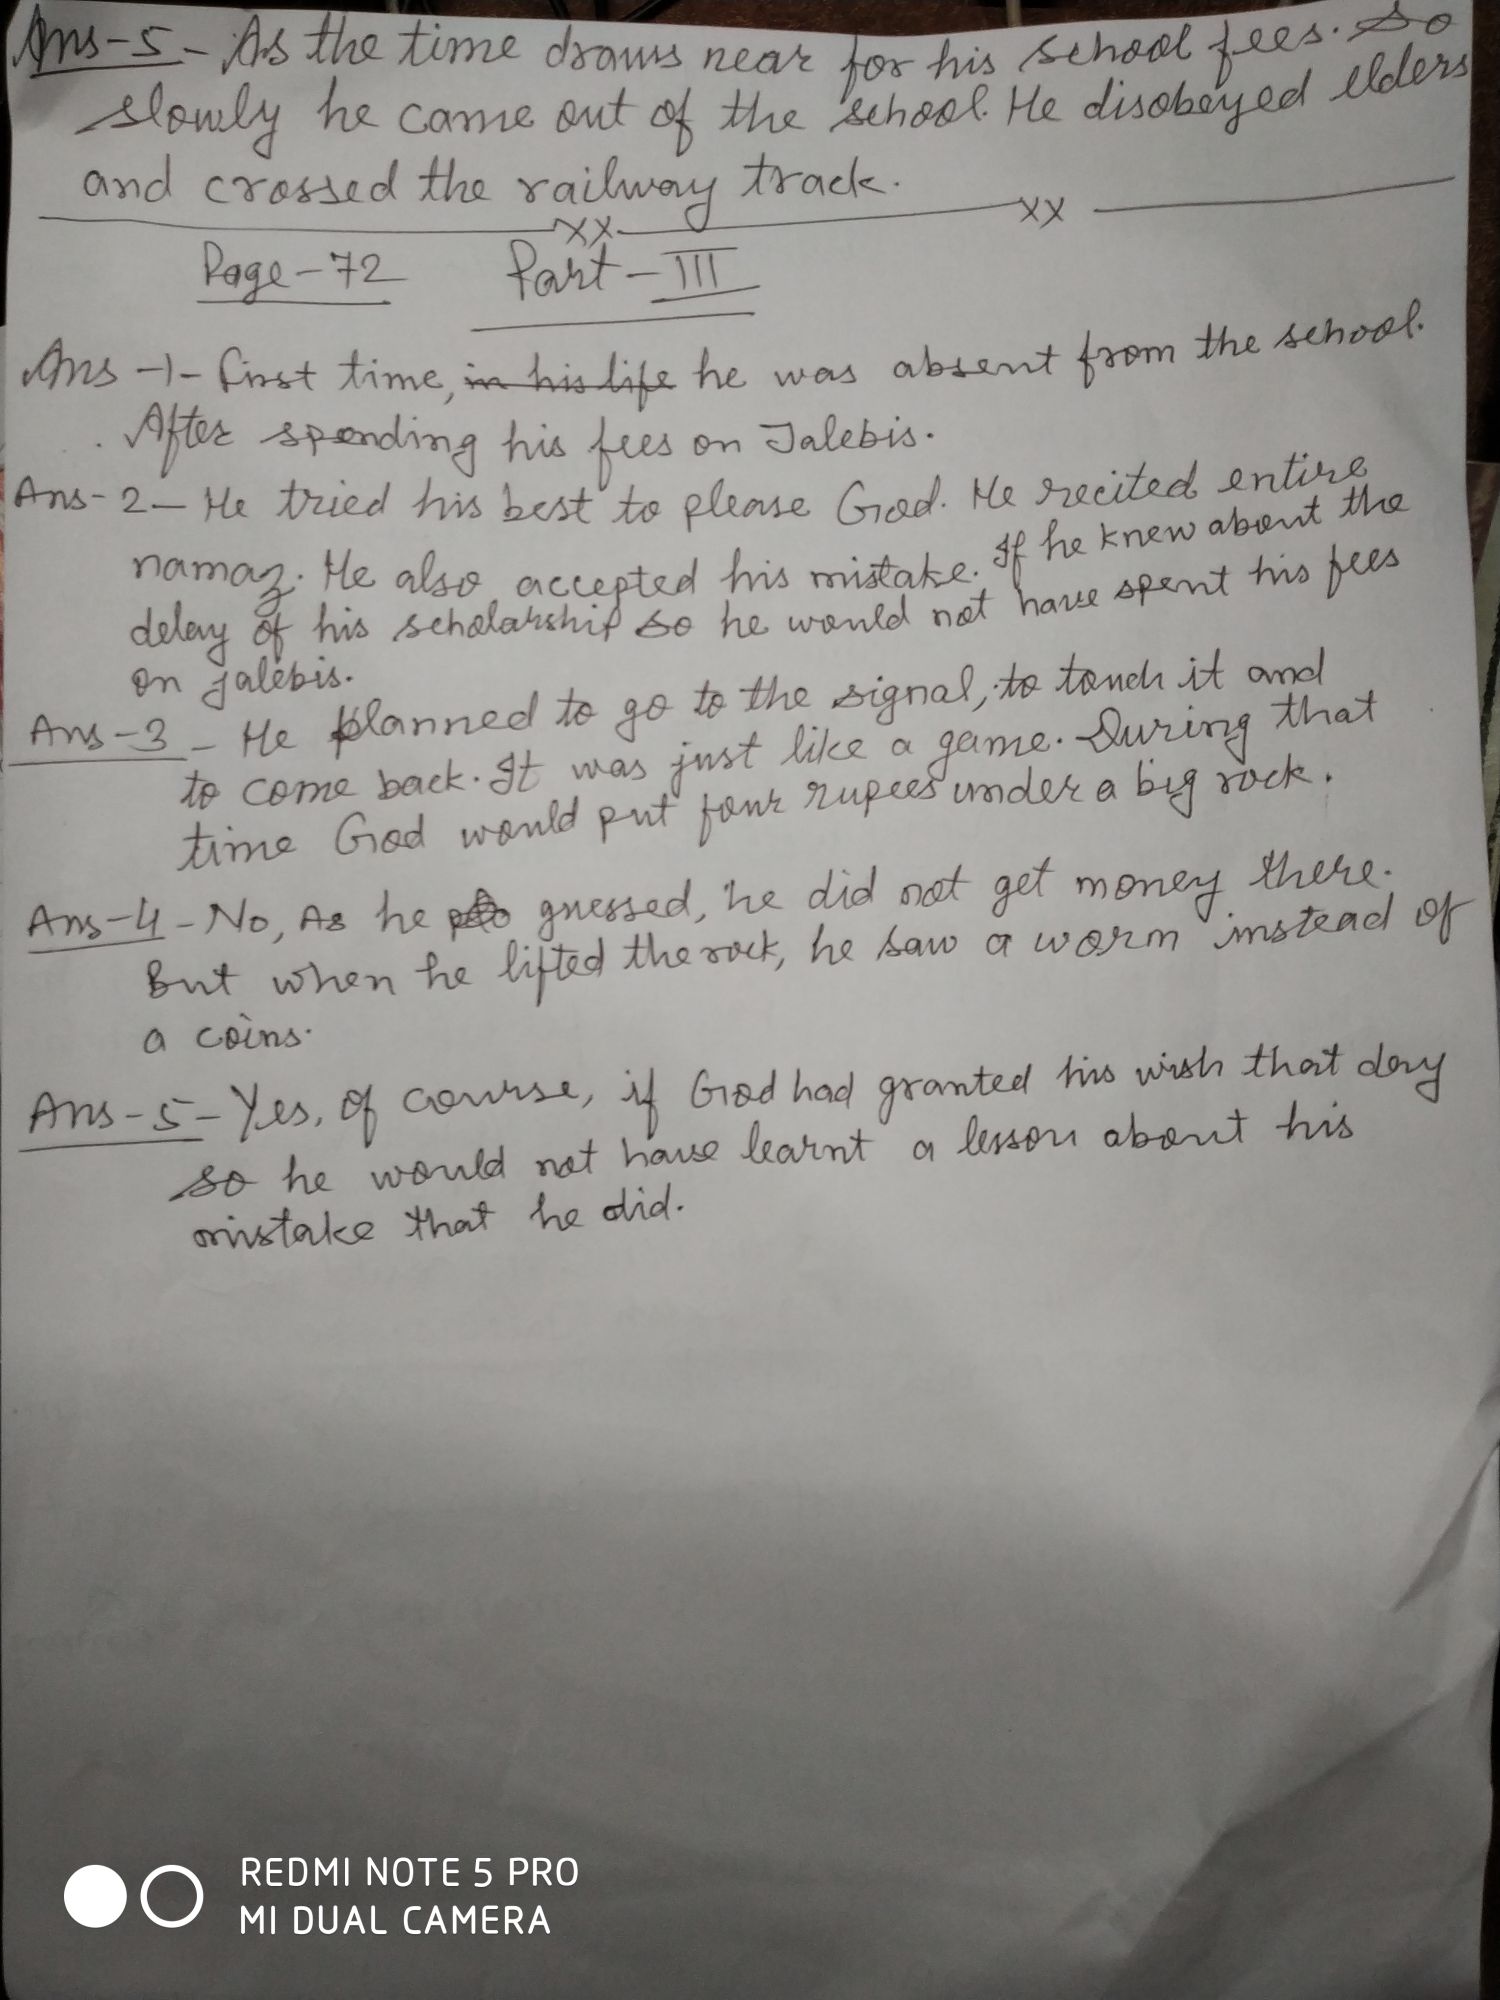 Ans-5- As the time draws near for his school fees. So
slowly he came out of the school. He disobeyed elders
and crossed the railway track.
xx xx
Page-72 Part-III
Ans-1- First time, in his life he was absent from the school.
After spending his fees on Jalebis.
Ans-2- He tried his best to please God. He recited entire
namaz. He also accepted his mistake. If he knew about the
delay of his scholarship so he would not have spent his fees
on jalebis.
Ans-3- He planned to go to the signal, to touch it and
to come back. It was just like a game. During that
time God would put four rupees under a big rock.
Ans-4- No, As he guessed, he did not get money there.
But when he lifted the rock, he saw a worm instead of
a coins.
Ans-5- Yes, of course, if God had granted his wish that day
so he would not have learnt a lesson about his
mistake that he did.
REDMI NOTE 5 PRO
MI DUAL CAMERA